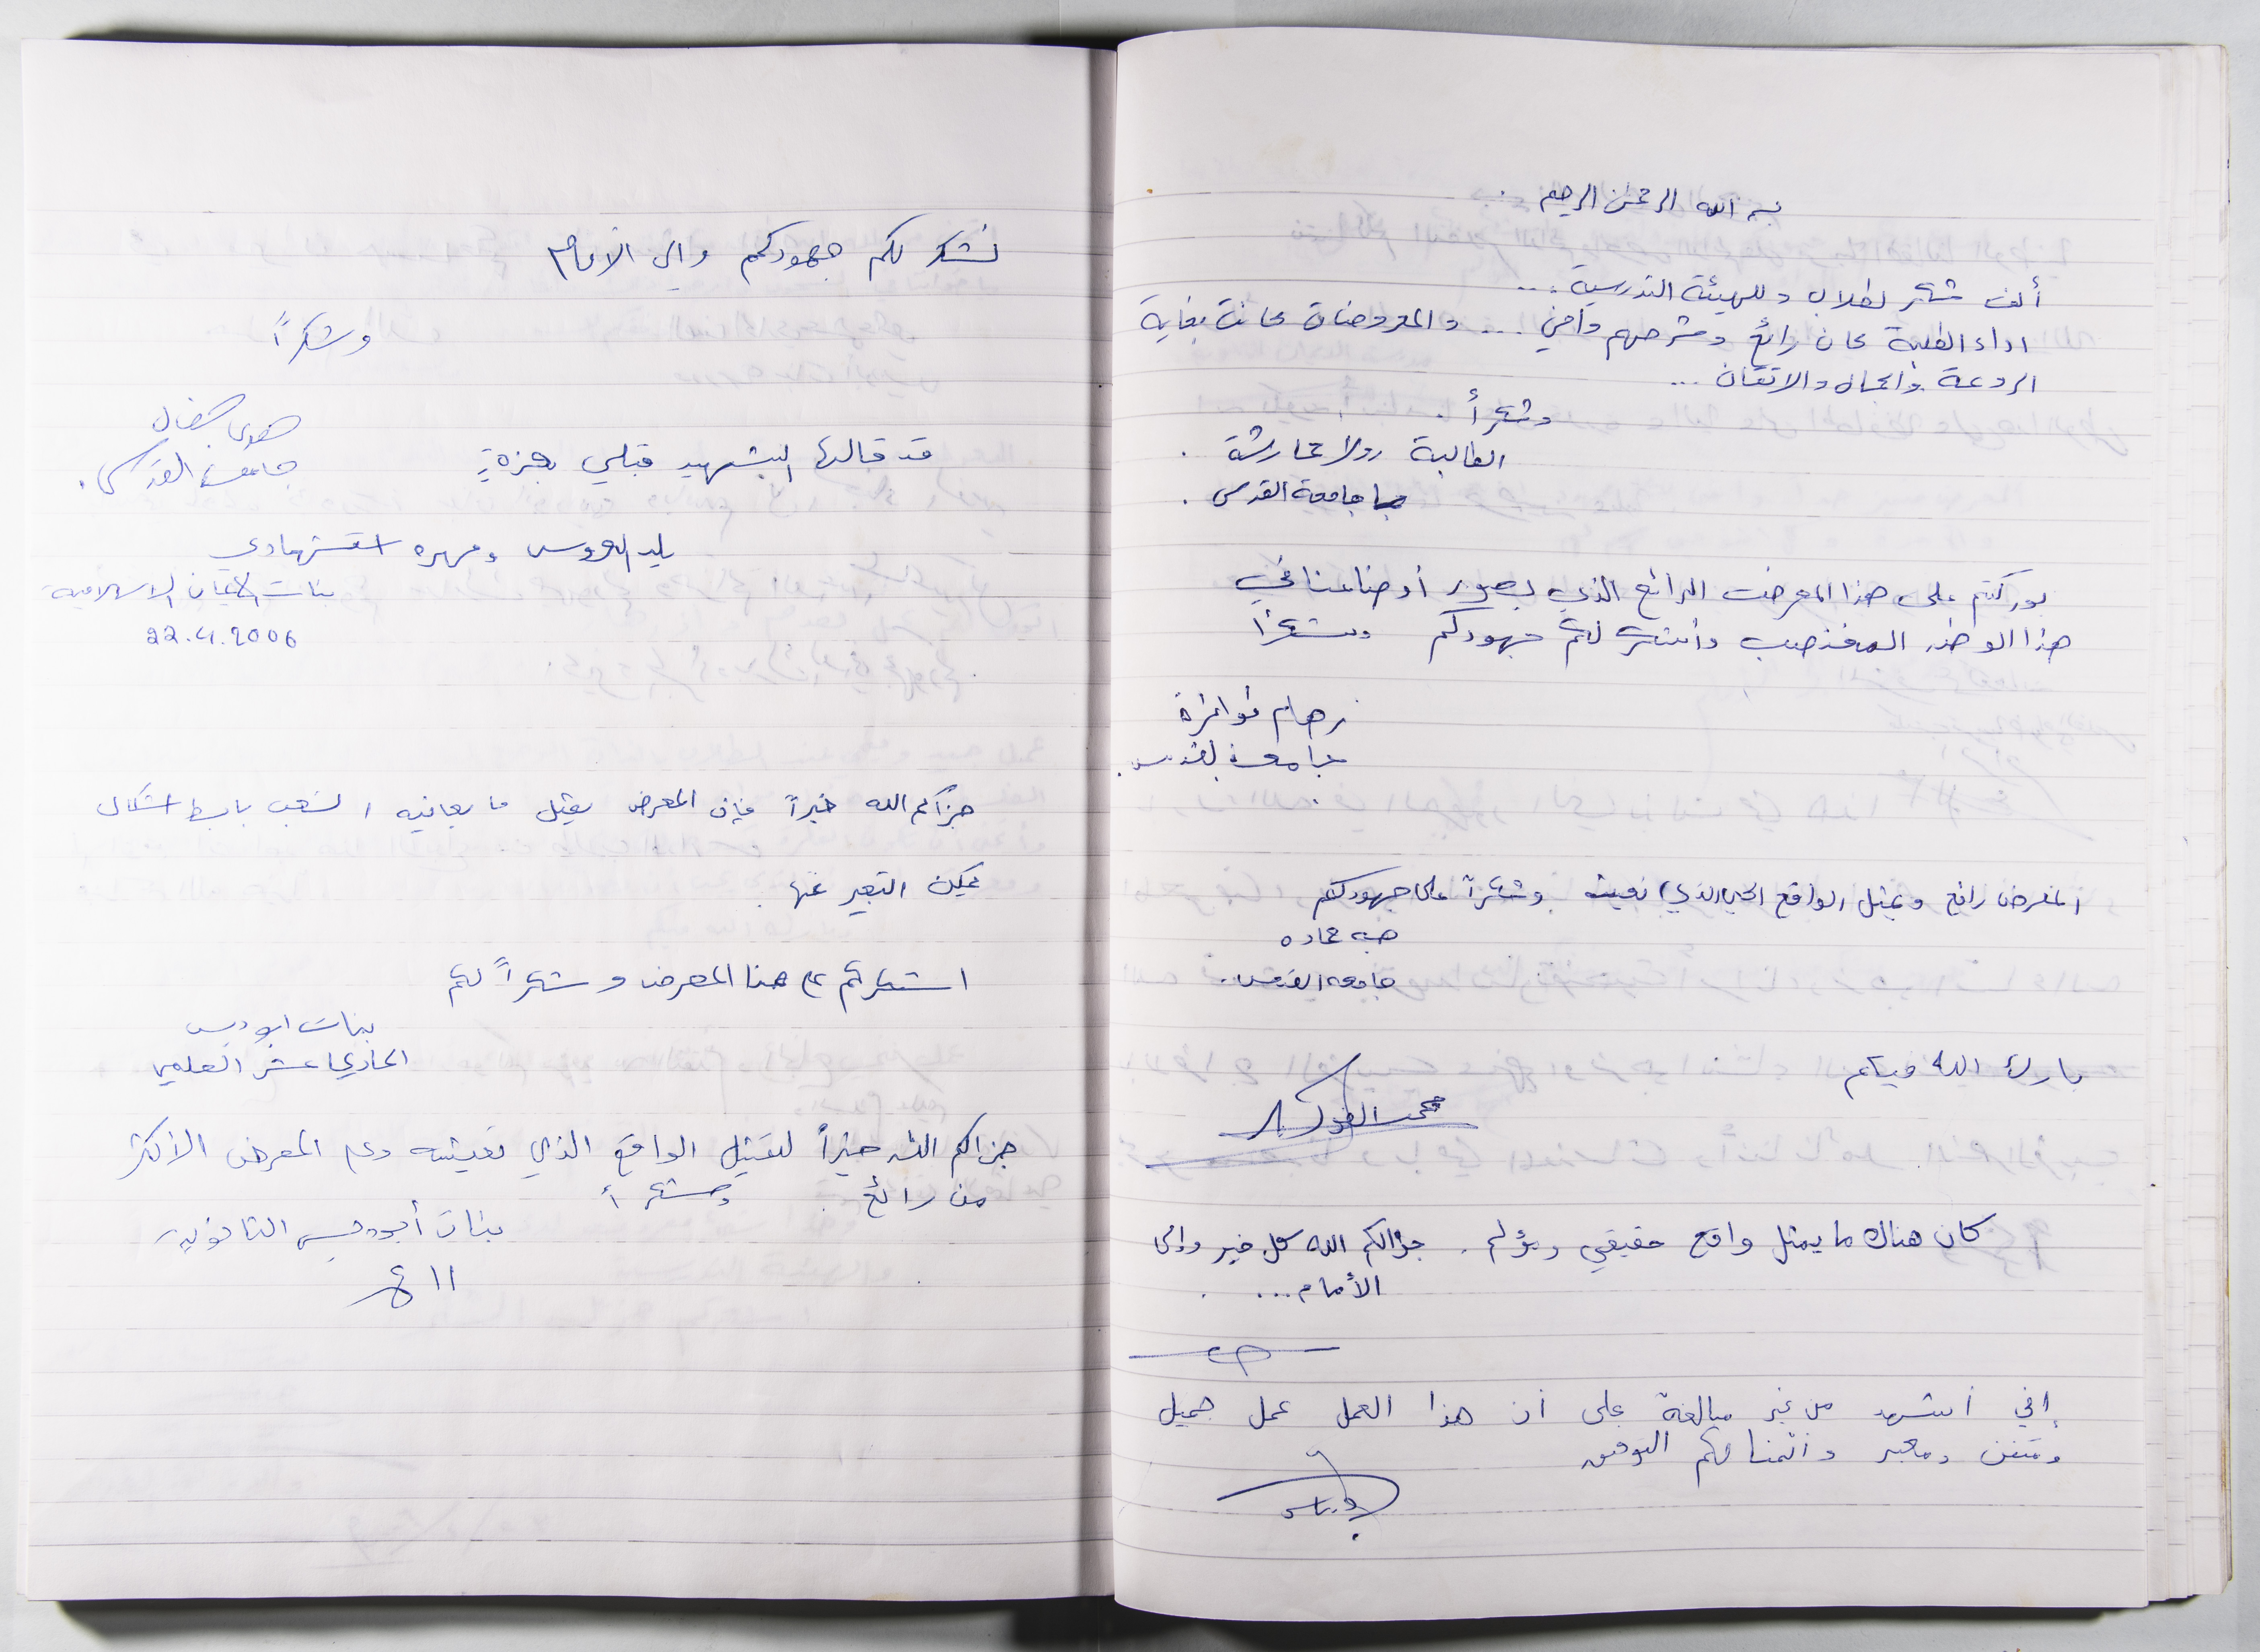 بسم الله الرحمن الرحيم
ألف شكر لطلاب وللهيئة التدريسية...
اداء الطلبة كان رائع وشرحهم وافي ... والمعروضات كانت بغاية
الروعة والجمال والاتقان ...
وشكراً.
الطالبة رولا عمارشة.
جامعة القدس.
بوركتم على هذا المعرض الرائع الذي يصور أوضاعنا في
هذا الوطن المغتصب وأشكر لكم جهودكم وشكراً
رهام
جامعة القدس.
المعرض رائع ويمثل الواقع الحي الذي نعيشه وشكراً على جهودكم
هبه حماده
جامعة القدس.
بارك الله فيكم
محمد
كان هناك ما يمثل واقع حقيقي ومؤلم. جزاكم الله كل خير وإلى
الأمام...
إني أشهد من غير مبالغة على أن هذا العمل عمل جميل
ومتقن ومعبر وأتمنا لكم التوفيق
نشكر لكم جهودكم والى الامام
وشكراً
جامعة القدس.
قد قالها الشهيد قبلي بعزةٍ
العروس ومهره استشهادي
بنات الايمان الاسلامية
22.4.2006
جزاكم الله خيراً فإن المعرض يمثل ما يعانيه الشعب بابسط اشكال
يمكن التعبير عنها.
اشكركم على هذا المعرض وشكراً لكم
بنات ابوديس
الحادي عشر العلمي
جزاكم الله خيراً لتمثيل الواقع الذي نعيشه وعلى المعرض الأكثر
من رائع. وشكراً
بنات أبوديس الثانوية